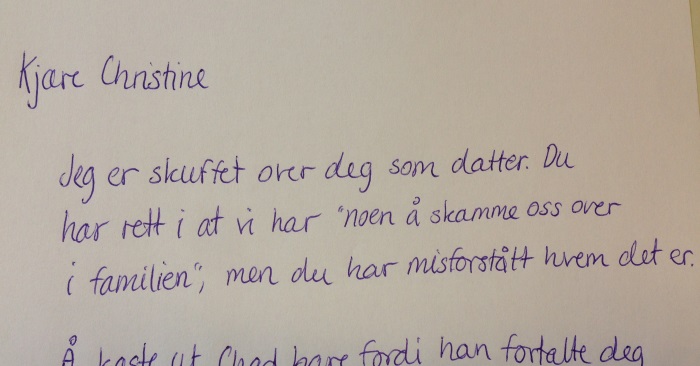 Kjære Christine
Jeg er skuffet over deg som datter. Du
har rett i at vi har "noen å skamme oss over
i familien", men du har misforstått hvem det er.
Å kaste ut Chad bare fordi han fortalte deg